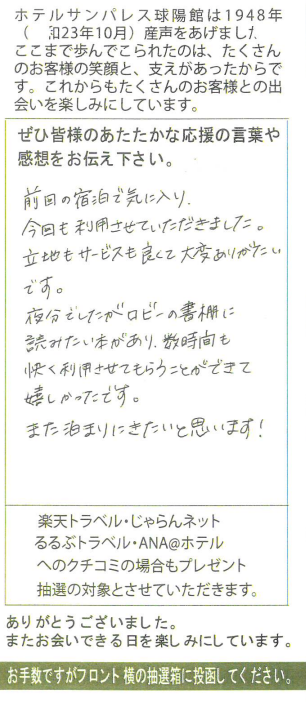 ホテルサンパレス球陽館は1948年
（ 和23年10月）産声をあげました
ここまで歩んでこられたのは、たくさん
のお客様の笑顔と、支えがあったからで
す。これからもたくさんのお客様との出
会いを楽しみにしています。
ぜひ皆様のあたたかな応援の言葉や
感想をお伝え下さい。
前回の宿泊で気に入り、
今回も利用させていただきました。
立地もサービスも良くて大変ありがたい
です。
夜分でしたがロビーの書棚に
読みたい本があり、数時間も
快く利用させてもらうことができて
嬉しかったです。
また泊まりにきたいと思います!
楽天トラベル・じゃらんネット
るるぶトラベル・ANA@ホテル
へのクチコミの場合もプレゼント
抽選の対象とさせていただきます。
ありがとうございました。
またお会いできる日を楽しみにしています。
お手数ですがフロント横の抽選箱に投函してください。